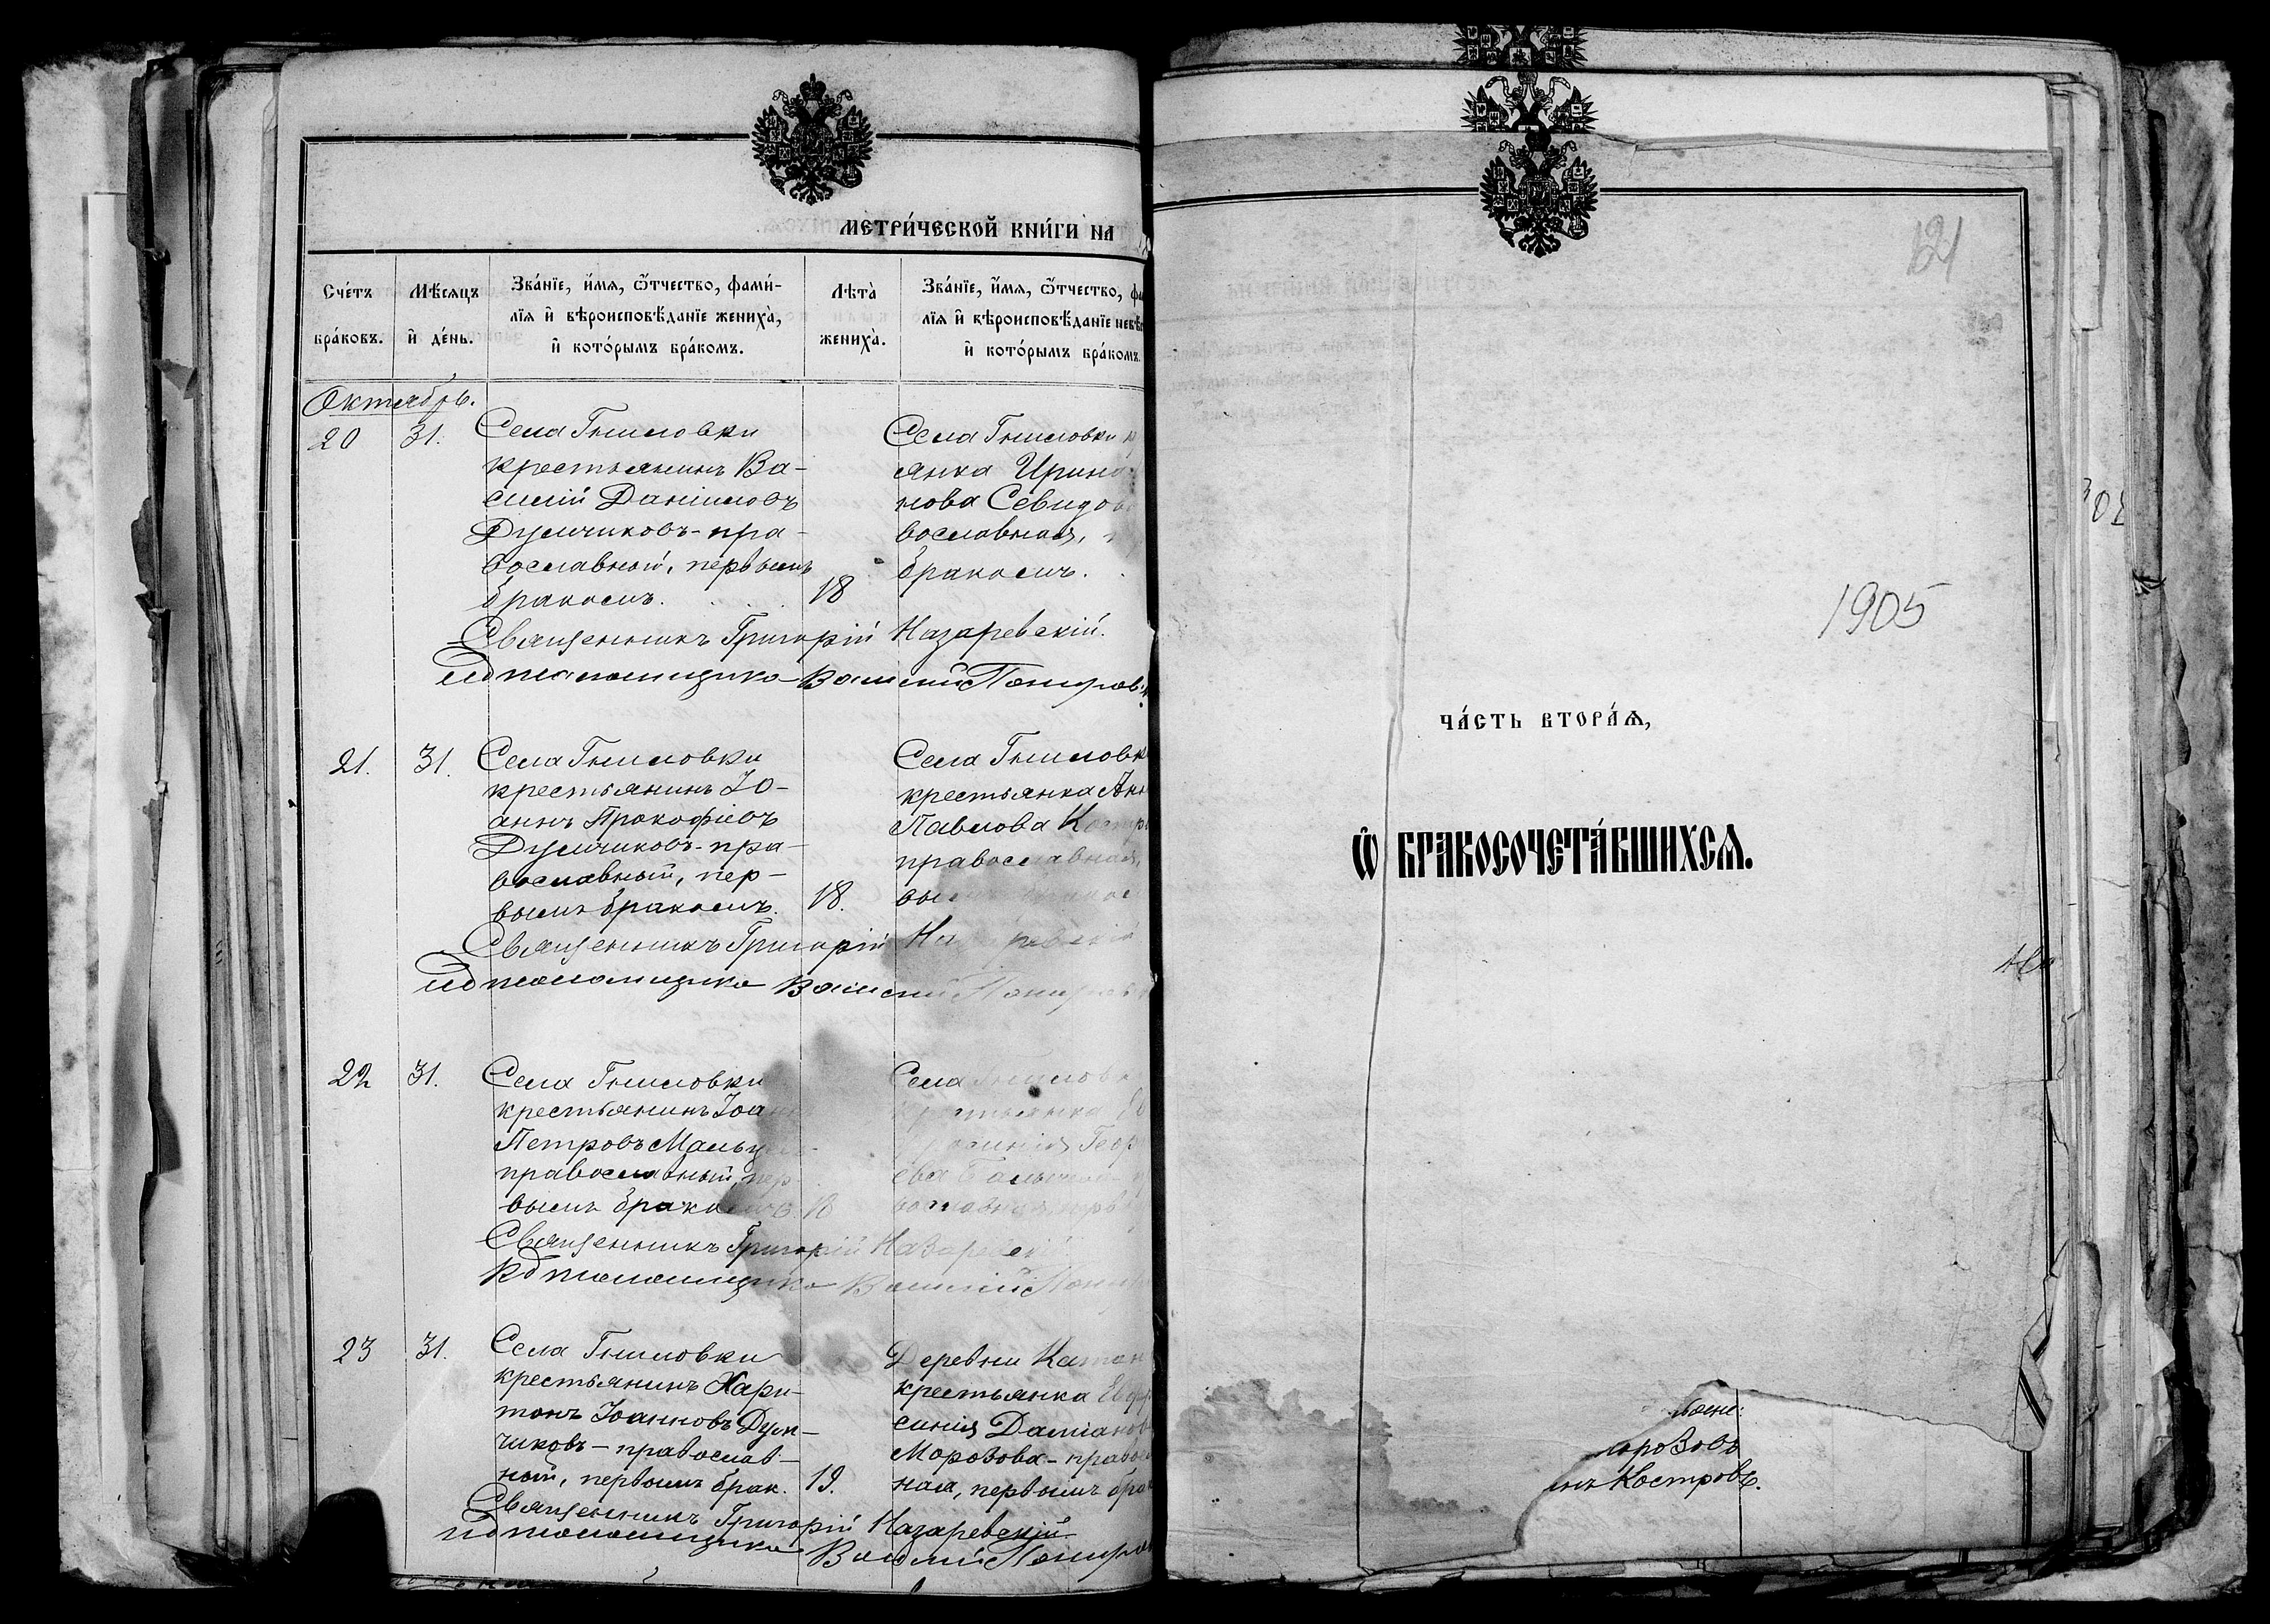 МЕТРИ́ЧЕСКОЙ КНИ́ГИ НА
Сче́тъ
бра́ковъ.
Мѣ́сяцъ
и҆ де́нь.
Зва́нїе, и҆́мя, ѻ҆́тчество, фами́-
лїя и҆ вѣроисповѣ́данїе жениха̀,
и҆ кото́рымъ бра́комъ.
Лѣта̀
жениха̀.
Зва́нїе, и҆́мя, ѻ҆́тчество,
лїя и҆ вѣроисповѣ́данїе
и҆ кото́рымъ бра́комъ.
Октябрь.
20
31.
Села Гниловки
крестьянинъ Ва-
силій Даніиловъ
Думчиковъ - пра-
вославный, первымъ
бракомъ.
18
Села Гниловки
янка Ирина
нова
вославная,
бракомъ.
Священникъ Григорій Назаревскій.
Псаломщикъ Василій
21.
31.
Села Гниловки
крестьянинъ Іо-
аннъ Прокофіевъ
Думчиковъ - пра-
вославный, пер-
вымъ бракомъ.
18.
Села Гниловк
крестьянка Анн
Павлова Костр
православная,
Священникъ Григорій
Псаломщикъ Василій
22
31.
Села Гниловки
крестьянинъ Іоаннъ
Петровъ
православный, пер-
вымъ бракомъ
18
Села Гниловк
крестьянка
Геор
Священникъ Григорій Назаревскій
Псаломщикъ Василій
23
31.
Села Гниловки
крестьянинъ Хари-
тонъ Іоанновъ Дум-
чиковъ - православ-
ный, первымъ брак.
19.
Деревни
крестьянка Евфр
синія Даміанов
Морозова - правос
ная, первымъ брак
Священникъ Григорій Назаревскій
Псаломщикъ Василій
121
1905
ЧА́СТЬ ВТОРА́Ѧ,
Ѽ БРАКОСОЧЕТА́ВШИХСѦ.
орозовъ
Костровъ.